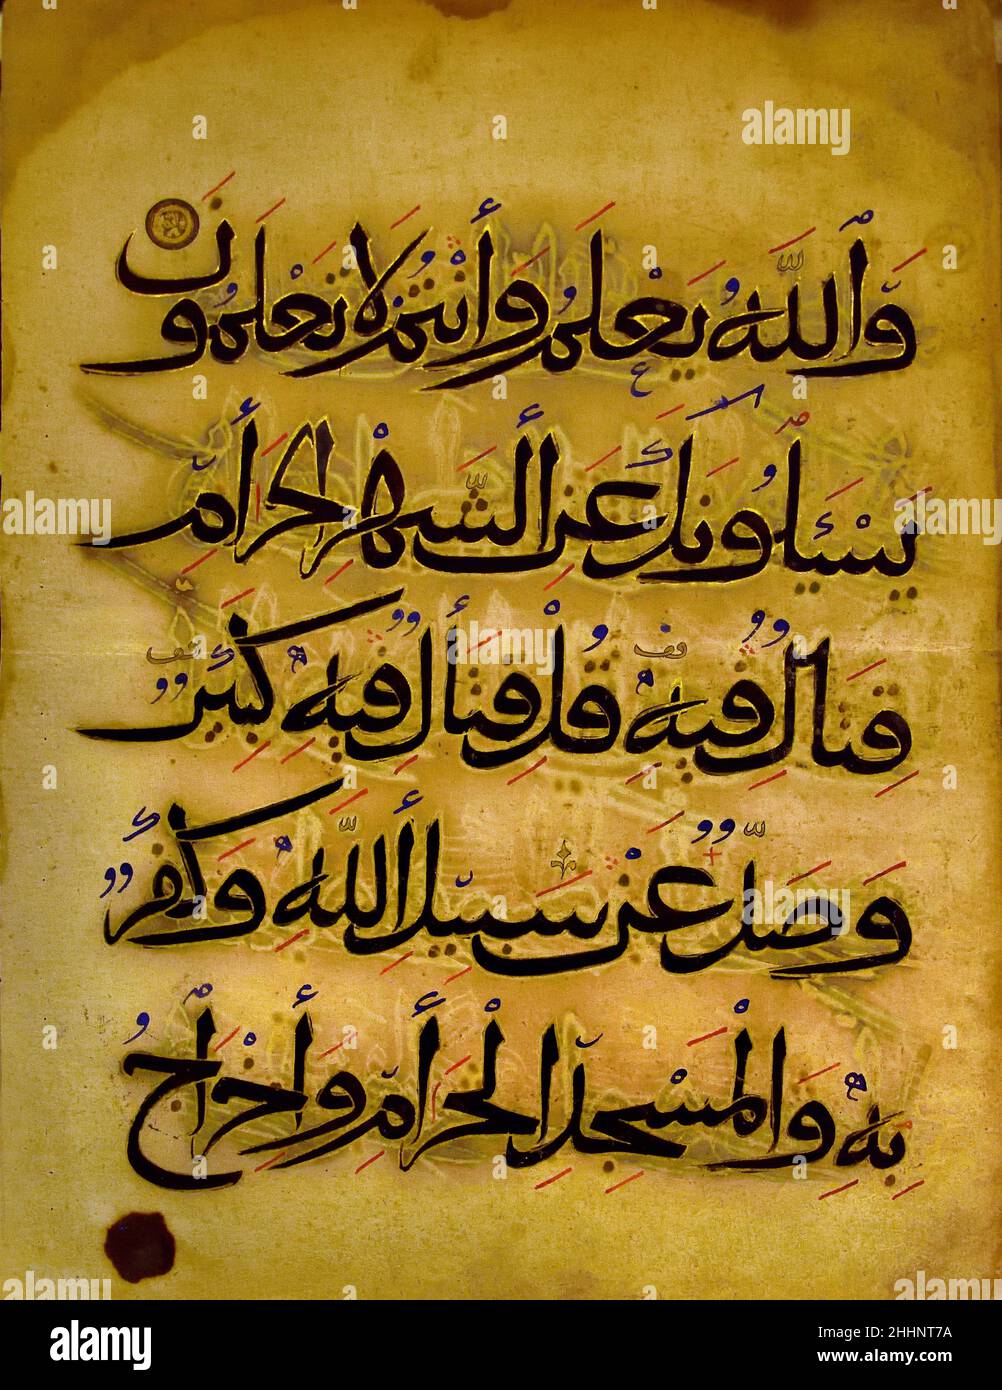 وَٱللَّهُ يَعْلَمُ وَأَنْتُمْ لَا تَعْلَمُونَ
يَسْـَٔلُونَكَ عَنِ ٱلشَّهْرِ ٱلْحَرَامِ
قِتَالٍ فِيهِ قُلْ قِتَالٌ فِيهِ كَبِيرٌ
وَصَدٌّ عَنْ سَبِيلِ ٱللَّهِ وَكُفْرٌ
بِهِ وَٱلْمَسْجِدِ ٱلْحَرَامِ وَإِخْرَاجُ
alamy
Image ID: 2HHNT7A
www.alamy.com